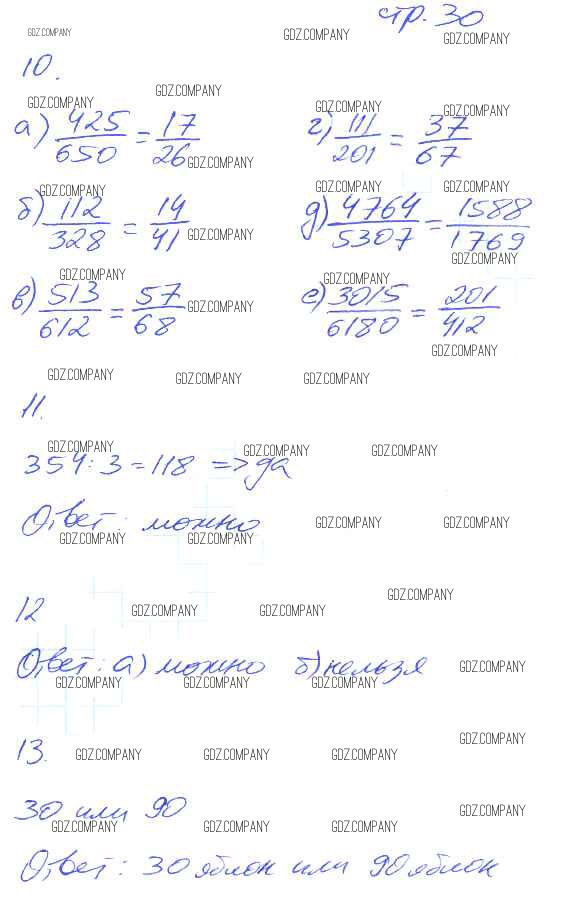 стр. 30
GDZ.COMPANY GDZ.COMPANY GDZ.COMPANY
10.
GDZ.COMPANY GDZ.COMPANY GDZ.COMPANY GDZ.COMPANY
а) 425/650 = 17/26 г) 111/201 = 37/67
GDZ.COMPANY
GDZ.COMPANY GDZ.COMPANY GDZ.COMPANY
б) 112/328 = 14/41 д) 4764/5307 = 1588/1769
GDZ.COMPANY GDZ.COMPANY
GDZ.COMPANY GDZ.COMPANY
в) 513/612 = 57/68 е) 3015/6180 = 201/412
GDZ.COMPANY GDZ.COMPANY
GDZ.COMPANY GDZ.COMPANY GDZ.COMPANY
11.
GDZ.COMPANY GDZ.COMPANY GDZ.COMPANY
354 : 3 = 118 => да
Ответ: можно
GDZ.COMPANY GDZ.COMPANY
GDZ.COMPANY GDZ.COMPANY
GDZ.COMPANY
12
GDZ.COMPANY GDZ.COMPANY
Ответ: а) можно б) нельзя
GDZ.COMPANY
GDZ.COMPANY GDZ.COMPANY GDZ.COMPANY
GDZ.COMPANY
13.
GDZ.COMPANY GDZ.COMPANY GDZ.COMPANY
30 или 90
GDZ.COMPANY
GDZ.COMPANY GDZ.COMPANY GDZ.COMPANY
Ответ: 30 яблок или 90 яблок